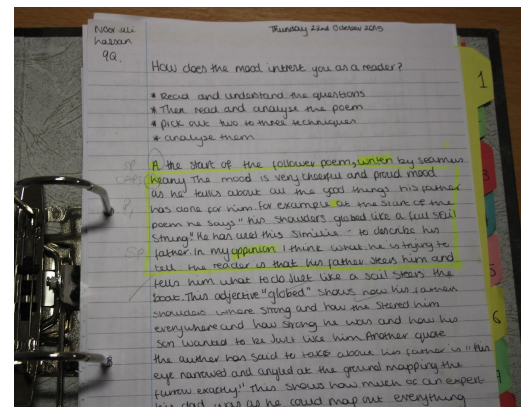 Noor-ul-
hassan
9Q.
Thursday 22nd October 2015
How does the mood intrest you as a reader?
* Read and understand the questions
* Then read and analyse the poem
* pick out two to three techniques
* analyse them
sp A the start of the follower poem, writen by seamus
caps heany The mood is very cheerful and proud mood
as he talks about all the good things his father
?, has done for him. For example at the start of the
poem he says "his shoulders globed like a full sail
strung". He has used this similie - to describe his
sp father. In my oppunion I think what he is trying to
tell the reader is that his father steers him and
tells him what to do Just like a sail steers the
boat. This adjective "globed" shows how his fathers
shoulders where strong and how the stered him
everywhere and how strong he was and how his
son wanted to be Just like him. Another quote
the author has said to take about his father is "his
eye narrowed and angled at the ground mapping the
furrow exactly." this shows how much of an expert
his dad was as he could map out everything
1
3
5
6
7